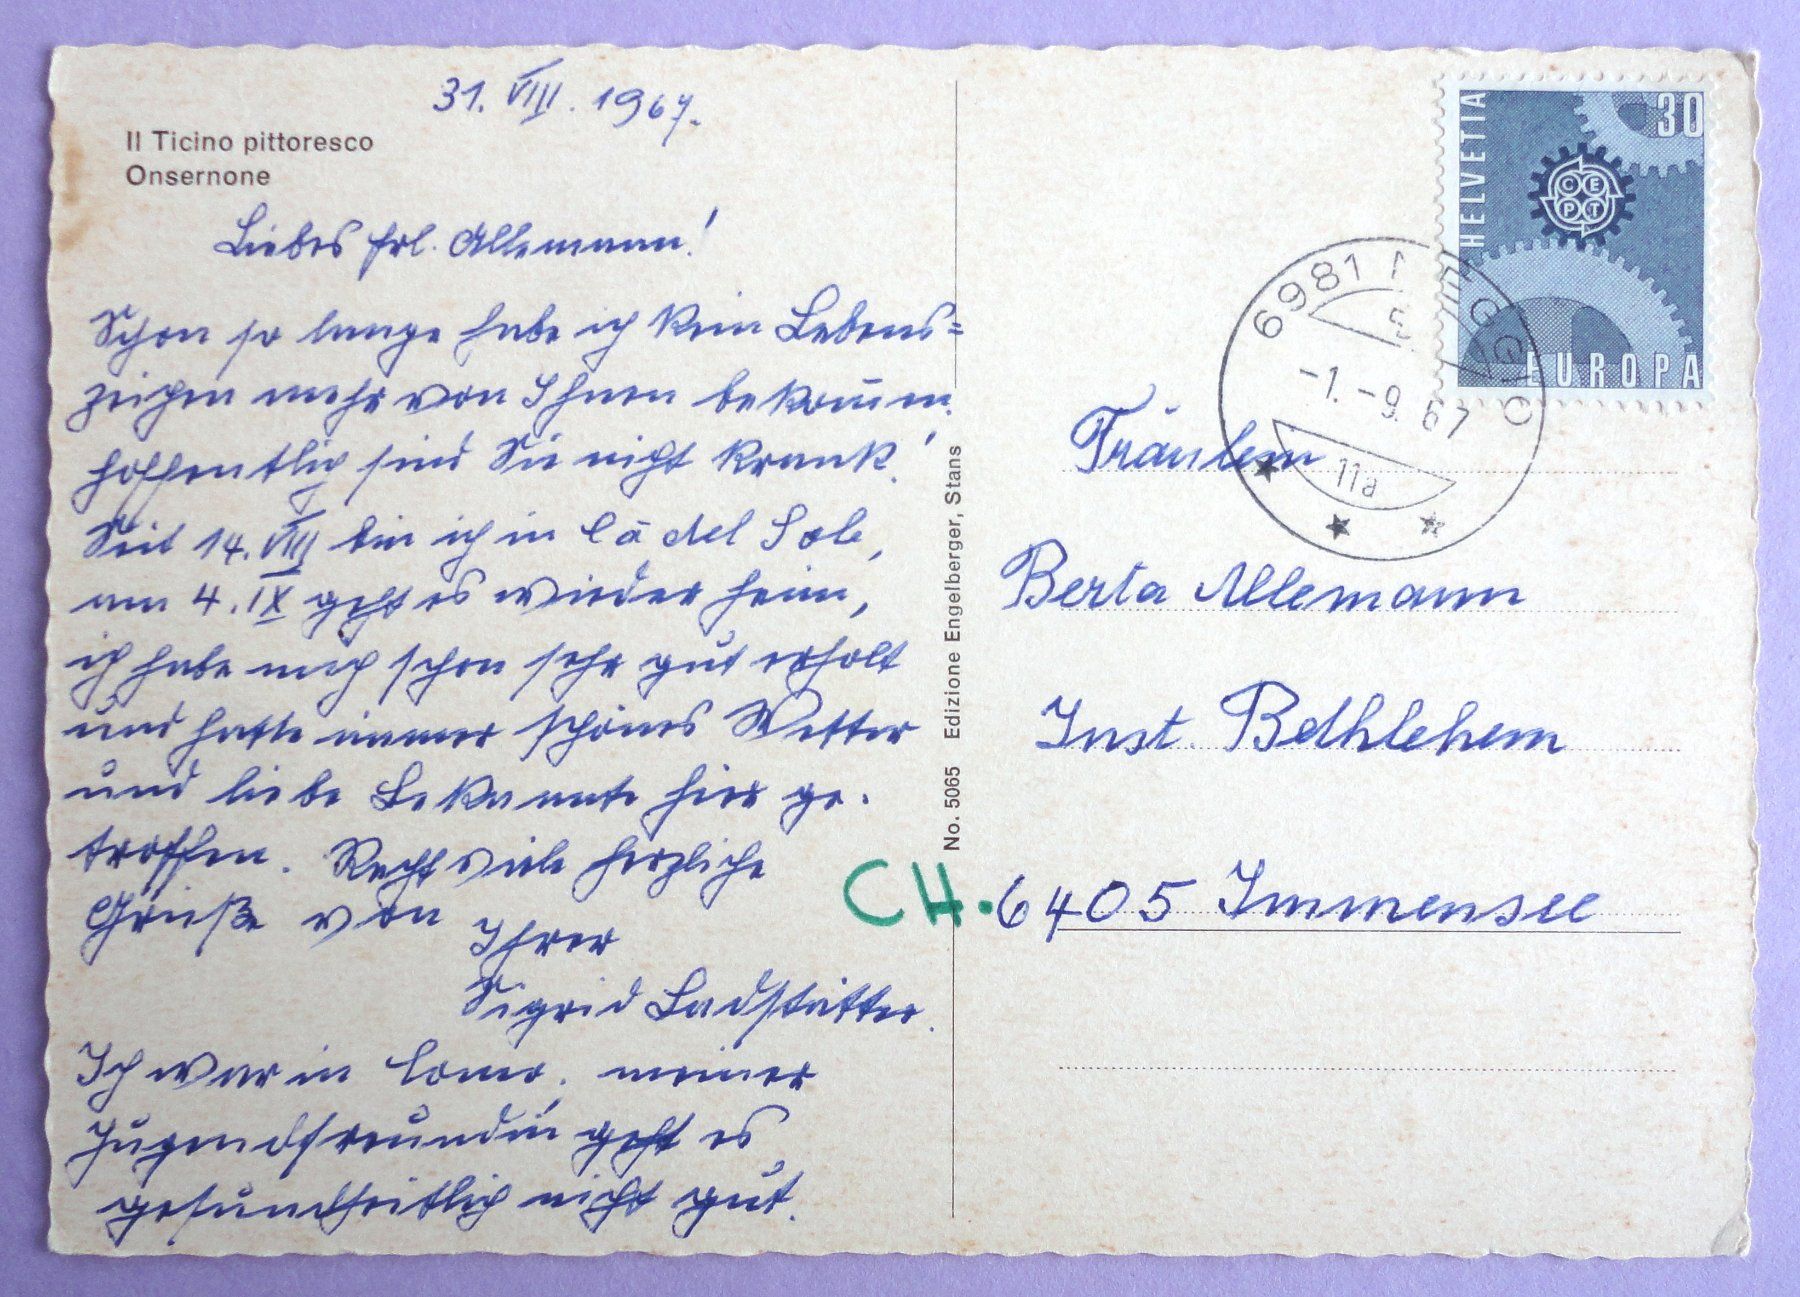 31. VIII. 1967.
Il Ticino pittoresco
Onsernone
Liebes Frl. Allemann!
Schon so lange habe ich kein Lebens=
zeichen mehr von Ihnen bekommen.
Hoffentlich sind Sie nicht krank!
Seit 14. VIII bin ich in Cà del Sole,
am 4. IX geht es wieder heim,
ich habe mich schon sehr gut erholt
und hatte immer schönes Wetter
und liebe Bekannte hier ge-
troffen. Recht viele herzliche
Grüße von
Ihrer
Sigrid Ladstätter.
Ich war in Comer. meiner
Jugendfreundin geht es
gesundheitlich nicht gut.
No. 5065 Edizione Engelberger, Stans
HELVETIA
30
CEPT
EUROPA
6981
-1.-9.67
11a
Fräulein
Berta Allemann
Inst. Bethlehem
CH-6405 Immensee